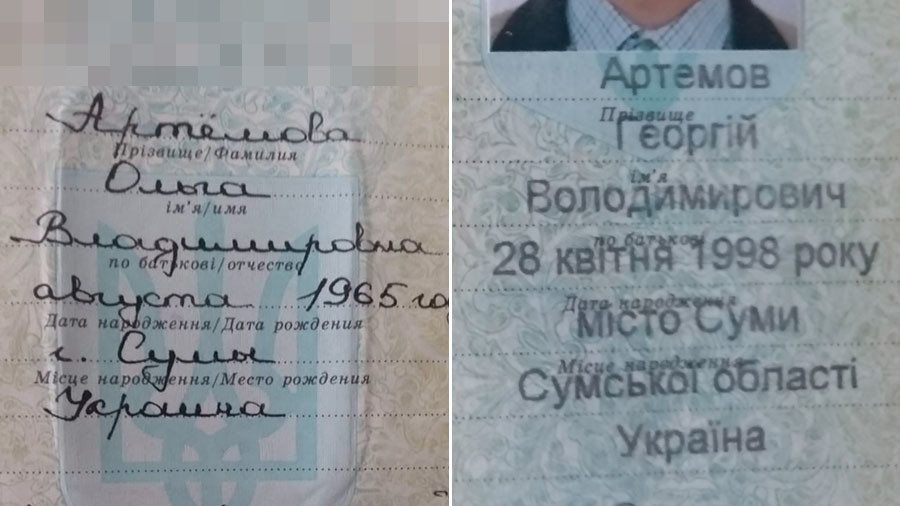 Артёмова
Прізвище/Фамилия
Ольга
ім'я/имя
Владимировна
по батькові/отчество
августа 1965 го
Дата народження/Дата рождения
г. Сумы
Місце народження/Место рождения
Украина
Артемов
Прізвище
Георгій
ім'я
Володимирович
по батькові
28 квітня 1998 року
Дата народження
місто Суми
Місце народження
Сумської області
Україна